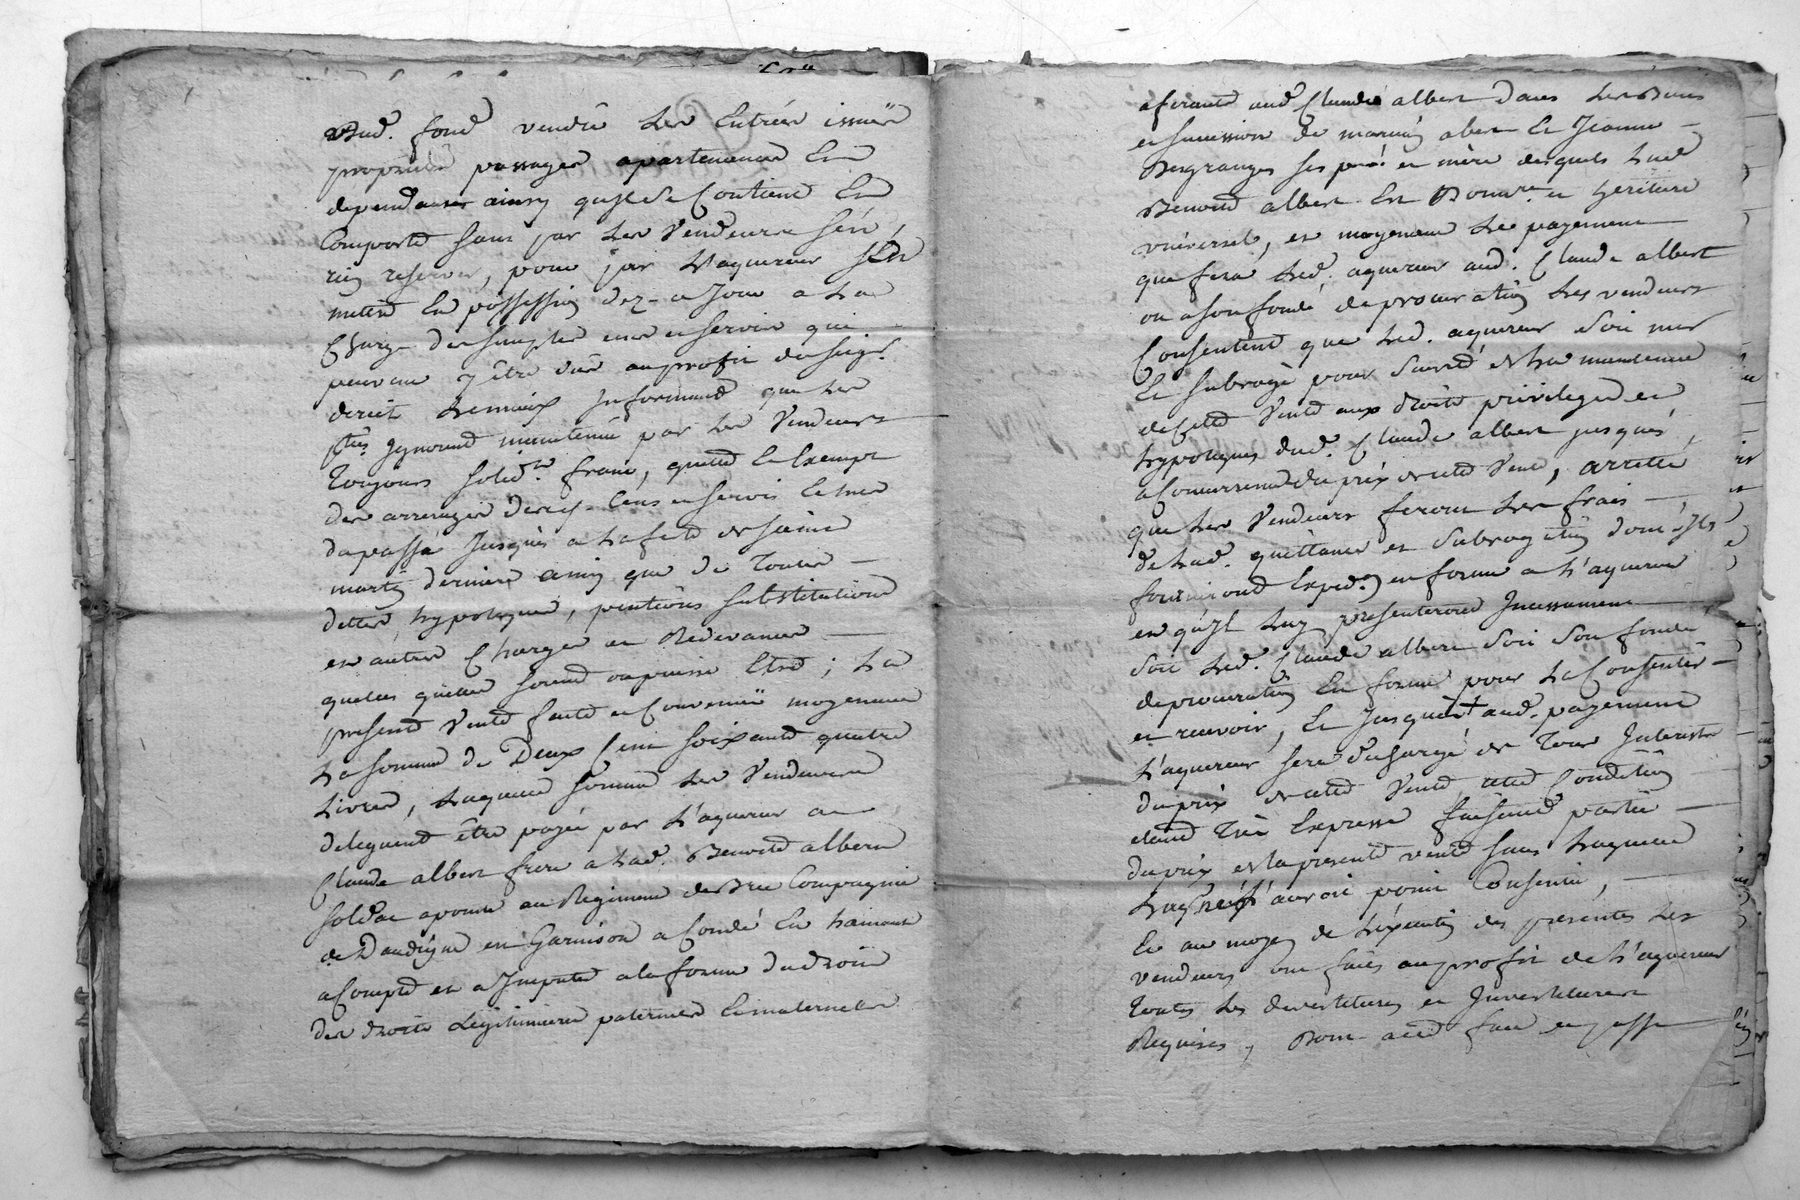 Aud. fond vendu les Entrées issües
proprietés passages apartenances Et
dependances ainsy qu'il se Contient Et
Comporte sans par les Vendeurs s'en
rien reserver, pour par l'aquereur s'En
mettre En possession dez-a Jour a la
Charge des simples cens et servis qui
peuvent y être dûs au profit du seigr.
direct les maix Informand que les
ptes ignorent maintenüe par les Vendeurs
Toujours solid.re franc, quitte Et Exempt
des arrerages desd. Cens et servis Et laods
du passé Jusques a la fete de saint
martin derniere ainsy que de Toutes
dettes hypoteques, pentions substitutions
et autres Charges et Redevances
quelles quelles soient ou puisse Etre ; La
presente Vente faite et Convenüe moyenant
La somme de Deux Cent soixante quatre
Livres, Laquelle somme les Vendeurs
deleguent être payée par L'aquereur au
Claude albert frere a lad. Benoite albert
soldat apointé au Regiment de Brie Compagnie
de Dandigne en Garnison a Condé En hainaut
a Compte et a Imputer a la forme du droit
des droits Legitimaires paternels Et maternels
aferants aud. Claude albert dans les Biens
et succession de marcein albert Et Jeanne
Desgranges ses pere et mere desquels lad.
Benoite albert Est Donat.re et heritiere
vniverselle, et moyenant Le payement
que fera led. aquereur aud. Claude albert
ou a son fondé de procuration Les vendeurs
Consentent que led. aquereur soit mis
Et subrogé pour sureté et La maintenue
de Cette Vente aux droits privileges et
hypoteques dud. Claude albert jusques a
Concurrence du prix de cette Vente, arretté
que Les Vendeurs feront Les frais
de lad. quittance et subrogation dont ils
fourniront Exped.on en forme a L'aquereur
et qu'il luy presenteront Incessament
soit led. Claude albert soit son fondé
de procuration En forme pour La Consentir
et recevoir, Et Jusques aud. payement
L'aquereur sera dechargé de Tous Interests
du prix de cette Vente, cette Condition
etant Tres Expresse faisant partie
du prix et la presente vente sans Laquelle
Laquereur n'auroit point Consenti,
Et au moyen de L'execution des presentes Les
vendeurs ont faits au profit de L'aquereur
Toutes Les devestitures et Investitures
Requises, Dont acte fait et passé